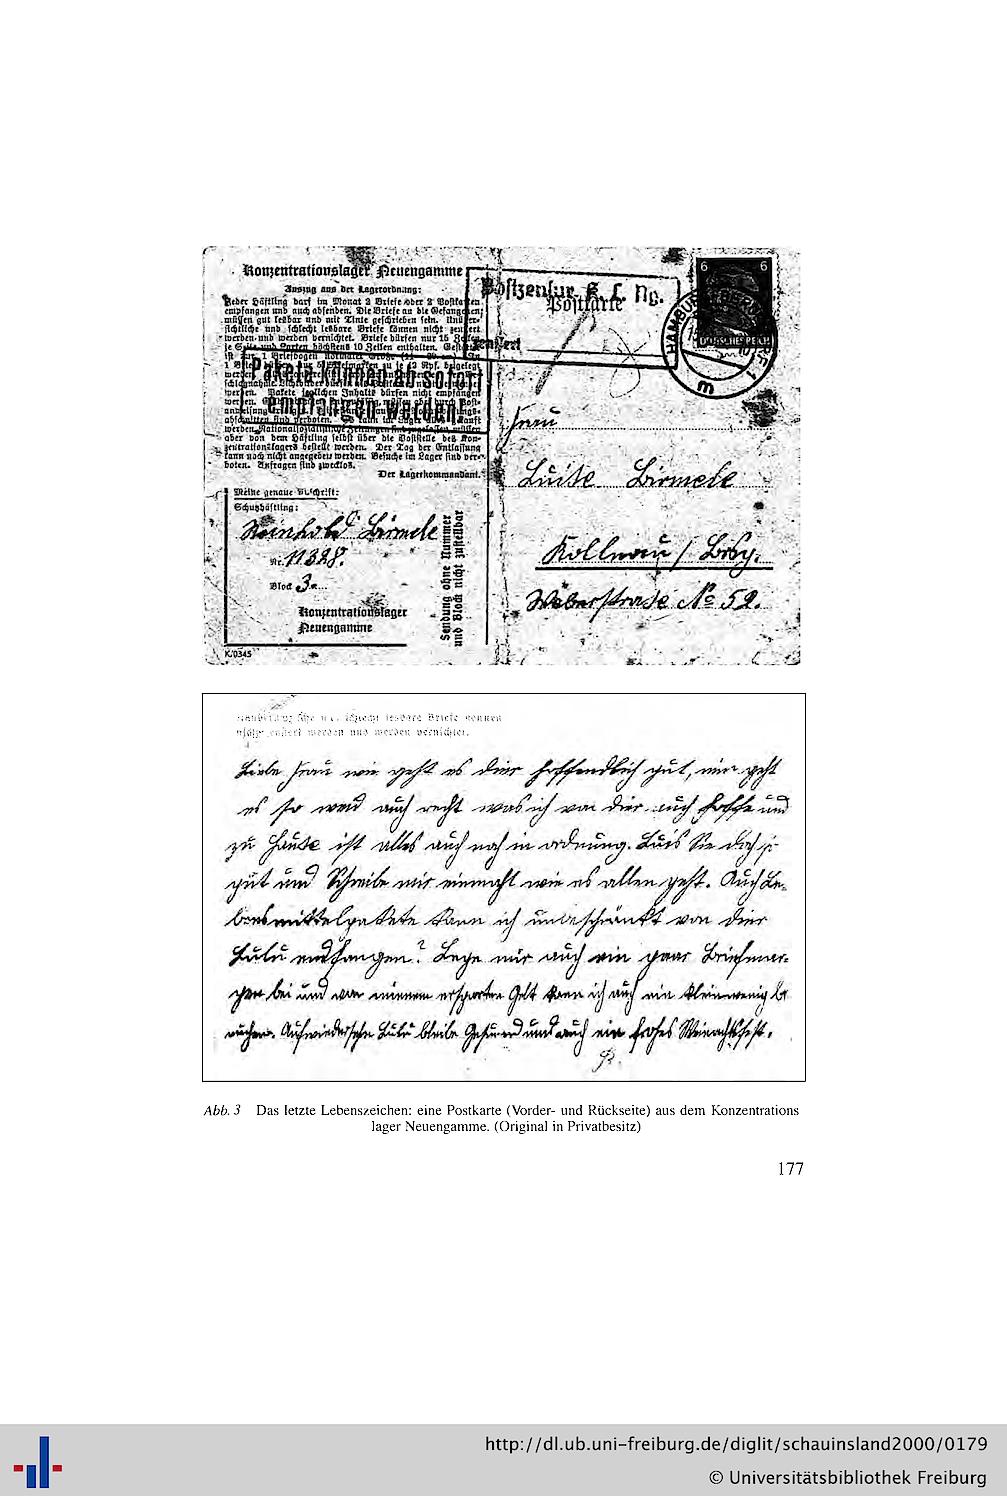 Konzentrationslager Neuengamme
Auszug aus der Lagerordnung:
Jeder Häftling darf im Monat 2 Briefe oder 2 Postkarten
empfangen und auch absenden. Die Briefe an die Gefangenen
müssen gut lesbar und mit Tinte geschrieben sein.
und schlecht lesbare Briefe können nicht zensiert
werden und werden vernichtet. Briefe dürfen nur 15 Zeilen
je Seite und Karten höchstens 10 Zeilen enthalten.
ist nur 1 Briefbogen normaler Größe
Pakete
ab sofort
empfangen werden!
werden. Nationalsozialistische Zeitungen sind zugelassen, müssen
aber von dem Häftling selbst über die Poststelle des Kon-
zentrationslagers bestellt werden. Der Tag der Entlassung
kann noch nicht angegeben werden. Besuche im Lager sind ver-
boten. Anfragen sind zwecklos.
Der Lagerkommandant.
Meine genaue Anschrift:
Schutzhäftling:
Reinhold Birmele
Nr. 11328.
Block 3
Konzentrationslager
Neuengamme
Sendung ohne Nummer
und Block nicht zustellbar
K/0345
Postzensur K. L. Ng.
Postkarte
zensiert
6 6
HAMBURG
DEUTSCHES REICH
m
Frau
Luise Birmele
Kollnau / Brsg.
Weberstraße No 52.
schlecht lesbare Briefe können
nicht zensiert werden und werden vernichtet.
Liebe Frau wie geht es dier hoffendlich gut, mir geht
es so weid auch recht was ich von dier auch hoffe und
zu Hause ist alles auch noch in ordnung. Luis Sie doch so
gut und Schreibe mir einmahl wie es allen geht. Auch Le-
bensmittelpakete kann ich unbeschränkt von dier
Lulu emdfangen? Lege mir auch ein paar Briefmar-
gen bei und von meinem ersparten Gelt kann ich auch ein klein wenig br
auchen. Aufwiedersehn Lulu bleibe Gesund und auch ein frohes Weinachtsfest.
Abb. 3 Das letzte Lebenszeichen: eine Postkarte (Vorder- und Rückseite) aus dem Konzentrations
lager Neuengamme. (Original in Privatbesitz)
177
http://dl.ub.uni-freiburg.de/diglit/schauinsland2000/0179
© Universitätsbibliothek Freiburg